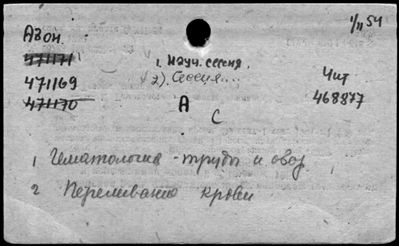 1/II 54
Азон
471171
471169
471170
1. Науч. сессия.
2). Сессия...
А
С
Чит
468877
1 Гематология - труды и обоз
2 Переливание крови